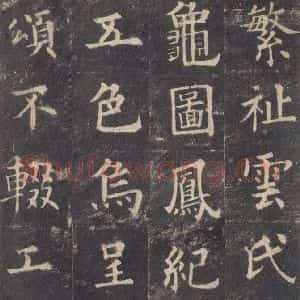 繁祉雲氏
龜圖鳳紀
五色烏呈
頌不輟工
Shufawang.cn